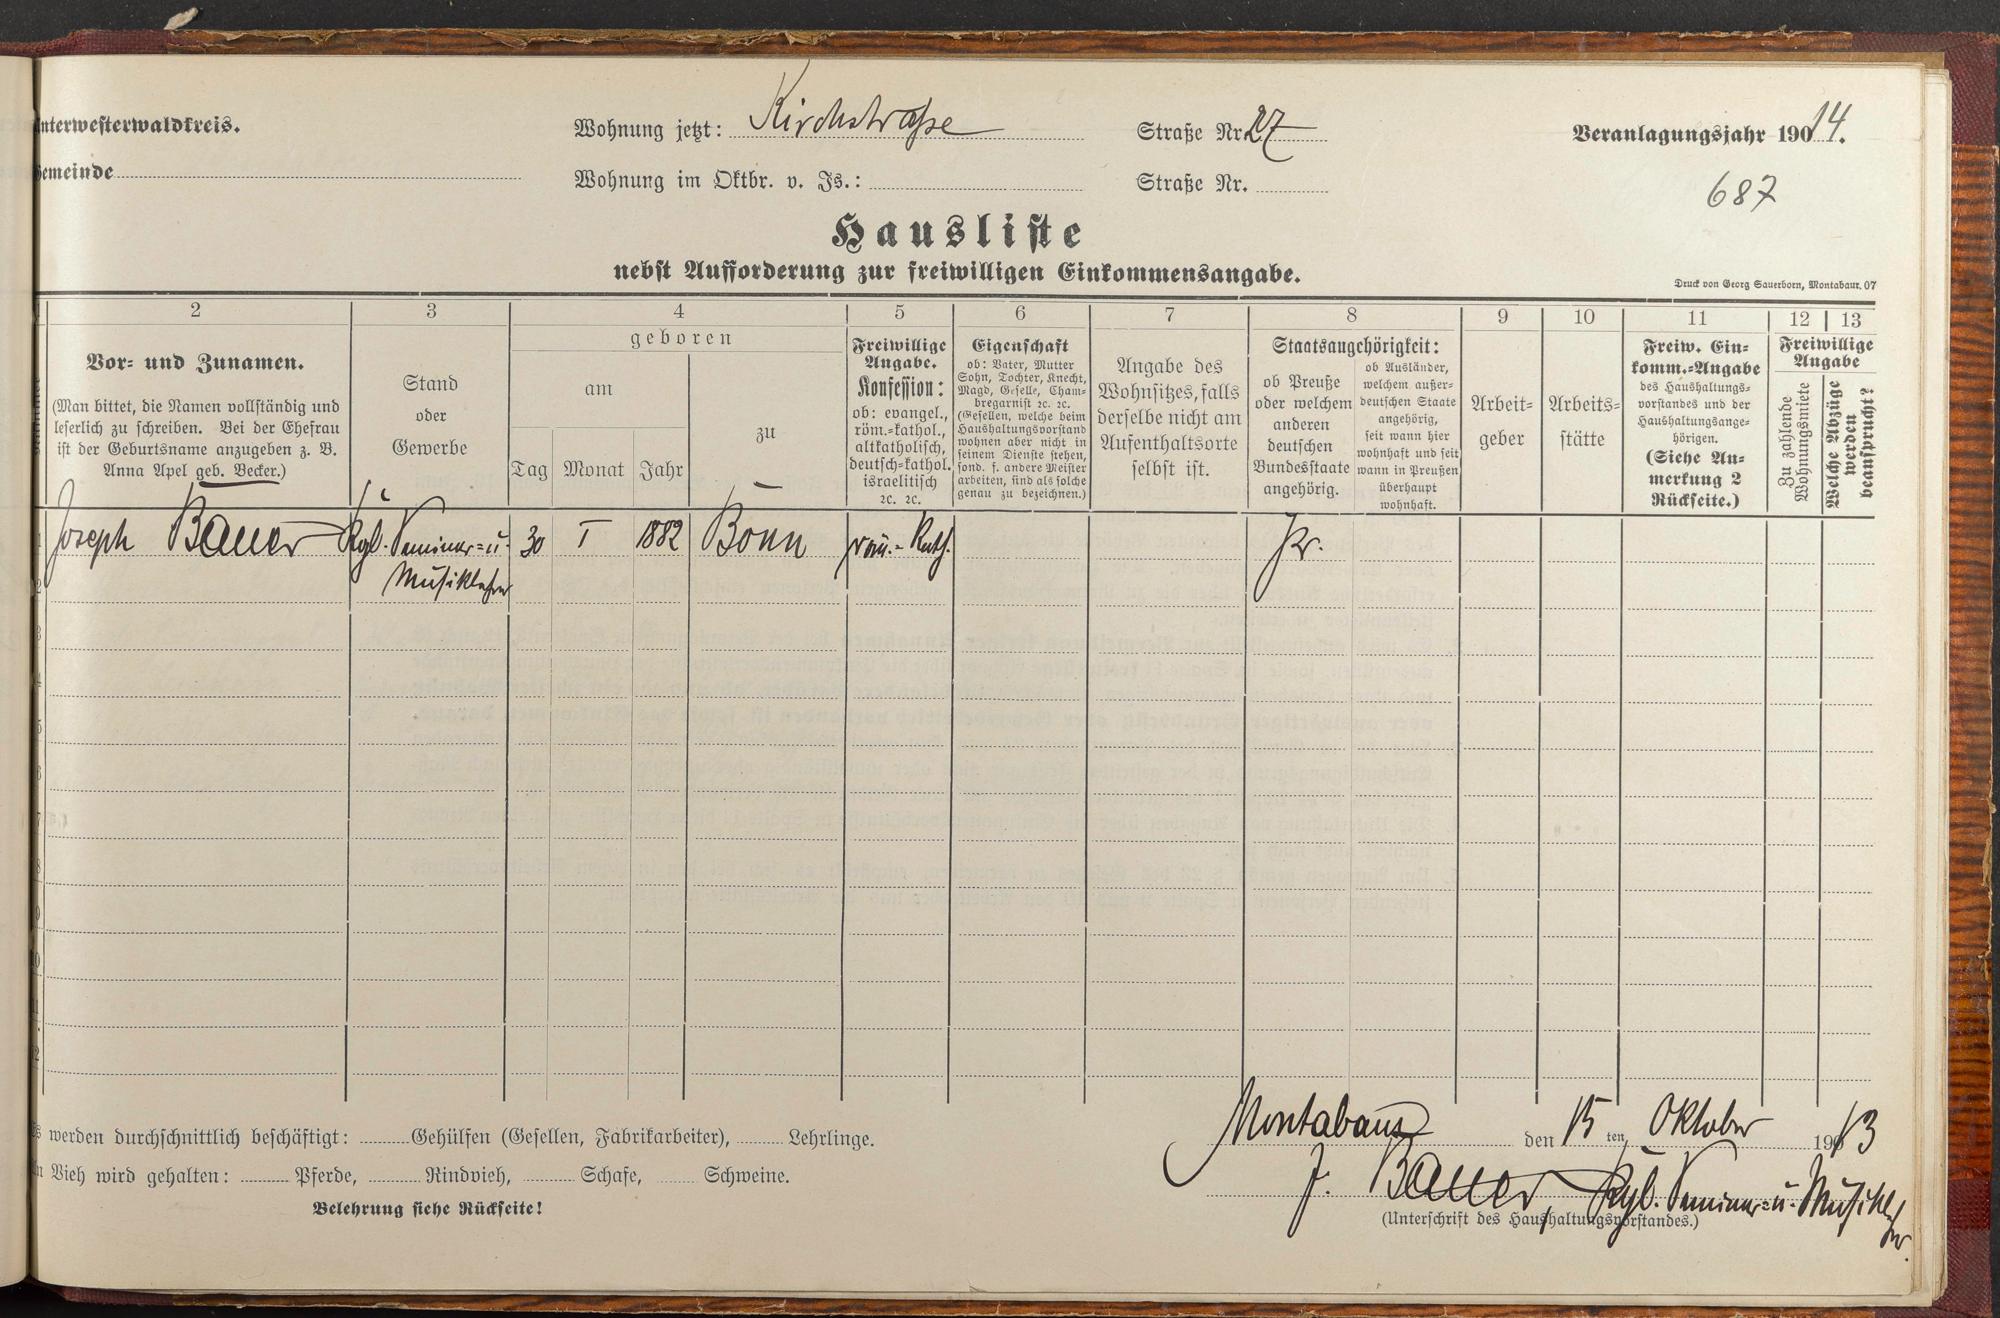 nterwesterwaldkreis.
Wohnung jetzt: Kirchstraße Straße Nr. 27
Veranlagungsjahr 190 14.
emeinde
Wohnung im Oktbr. v. Js.: Straße Nr.
687
Hausliste
nebst Aufforderung zur freiwilligen Einkommensangabe.
Druck von Georg Sauerborn, Montabaur. 07
2 3 4 5 6 7 8 9 10 11 12 13
Vor- und Zunamen.
(Man bittet, die Namen vollständig und
leserlich zu schreiben. Bei der Ehefrau
ist der Geburtsname anzugeben z. B.
Anna Apel geb. Becker.)
Stand
oder
Gewerbe
geboren
am
Tag Monat Jahr
zu
Freiwillige
Angabe.
Konfession:
ob: evangel.,
röm.-kathol.,
altkatholisch,
deutsch-kathol.
israelitisch
ꝛc. ꝛc.
Eigenschaft
ob: Vater, Mutter
Sohn, Tochter, Knecht,
Magd, Geselle, Cham-
bregarnist ꝛc. ꝛc.
(Gesellen, welche beim
Haushaltungsvorstand
wohnen aber nicht in
seinem Dienste stehen,
sond. f. andere Meister
arbeiten, sind als solche
genau zu bezeichnen.)
Angabe des
Wohnsitzes, falls
derselbe nicht am
Aufenthaltsorte
selbst ist.
Staatsangehörigkeit:
ob Preuße
oder welchem
anderen
deutschen
Bundesstaate
angehörig.
ob Ausländer,
welchem außer-
deutschen Staate
angehörig,
seit wann hier
wohnhaft und seit
wann in Preußen
überhaupt
wohnhaft.
Arbeit-
geber
Arbeits-
stätte
Freiw. Ein-
komm.-Angabe
des Haushaltungs-
vorstandes und der
Haushaltungsange-
hörigen.
(Siehe An-
merkung 2
Rückseite.)
Freiwillige
Angabe
Zu zahlende
Wohnungsmiete
Welche Abzüge
werden
beansprucht?
1 Joseph Bauer Kgl. Seminar- u. 30 I 1882 Bonn röm.-Kath. Pr.
2 Musiklehrer
3
4
5
6
7
8
9
10
11
12
Montabaur den 15 ten Oktober 1913
s werden durchschnittlich beschäftigt: Gehülfen (Gesellen, Fabrikarbeiter), Lehrlinge.
n Vieh wird gehalten: Pferde, Rindvieh, Schafe, Schweine.
J. Bauer, Kgl. Seminar- u. Musikleh-
rer.
Belehrung siehe Rückseite!
(Unterschrift des Haushaltungsvorstandes.)